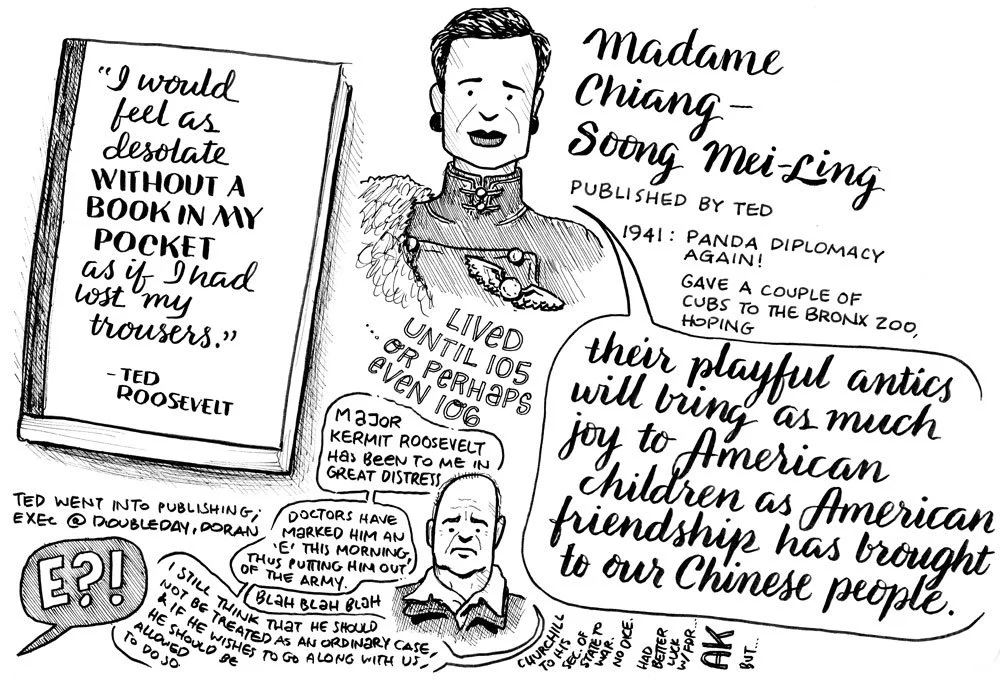 "I would
feel as
desolate
WITHOUT A
BOOK IN MY
POCKET
as if I had
lost my
trousers."
- TED
ROOSEVELT
Madame
Chiang -
Soong Mei-Ling
PUBLISHED BY TED
1941: PANDA DIPLOMACY
AGAIN!
GAVE A COUPLE OF
CUBS TO THE BRONX ZOO,
HOPING
their playful antics
will bring as much
joy to American
children as American
friendship has brought
to our Chinese people.
LIVED
UNTIL 105
...OR PERHAPS
EVEN 106
TED WENT INTO PUBLISHING;
EXEC @ DOUBLEDAY, DORAN
MAJOR
KERMIT ROOSEVELT
HAS BEEN TO ME IN
GREAT DISTRESS
DOCTORS HAVE
MARKED HIM AN
'E' THIS MORNING,
THUS PUTTING HIM OUT
OF THE ARMY.
BLAH BLAH BLAH
I STILL THINK THAT HE SHOULD
NOT BE TREATED AS AN ORDINARY CASE,
& IF HE WISHES TO GO ALONG WITH US,
HE SHOULD BE
ALLOWED
TO DO SO
E?!
CHURCHILL
TO HIS
SEC. OF
STATE TO
WAR.
NO DICE.
HAD
BETTER
LUCK
W/ FDR...
AK
BUT...